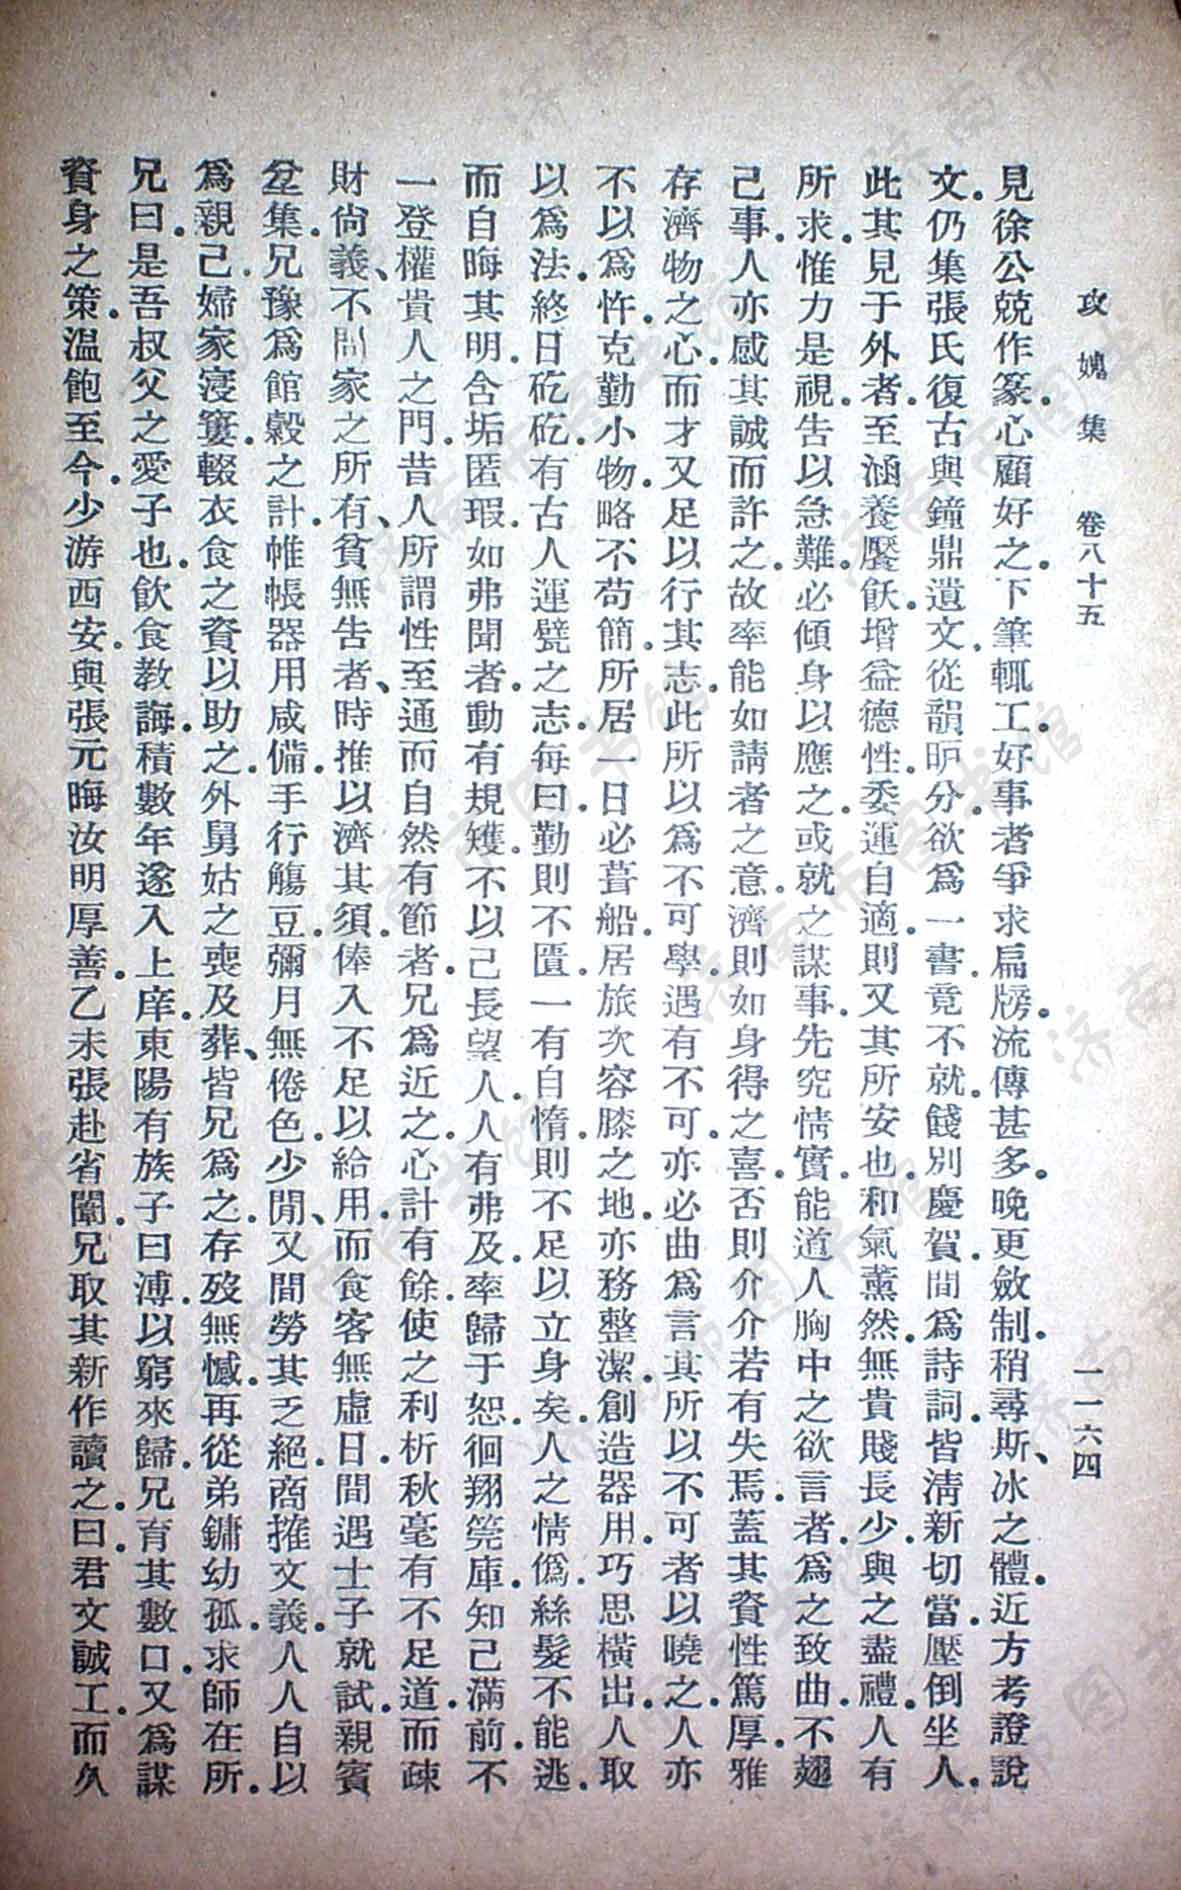 攻媿集 卷八十五 一一六四
見徐公兢作篆心顧好之下筆輒工好事者爭求扁牓流傳甚多晚更斂制稍尋斯冰之體近方考證說
文仍集張氏復古與鐘鼎遺文從韻昈分欲爲一書竟不就餞別慶賀間爲詩詞皆淸新切當壓倒坐人
此其見于外者至涵養饜飫增益德性委運自適則又其所安也和氣薰然無貴賤長少與之盡禮人有
所求惟力是視告以急難必傾身以應之或就之謀事先究情實能道人胸中之欲言者爲之致曲不翅
己事人亦感其誠而許之故率能如請者之意濟則如身得之喜否則介介若有失焉蓋其資性篤厚雅
存濟物之心而才又足以行其志此所以爲不可學遇有不可亦必曲爲言其所以不可者以曉之人亦
不以爲忤克勤小物略不苟簡所居一日必葺船居旅次容膝之地亦務整潔創造器用巧思橫出人取
以爲法終日矻矻有古人運甓之志每曰勤則不匱一有自惰則不足以立身矣人之情僞絲髮不能逃
而自晦其明含垢匿瑕如弗聞者動有規矱不以己長望人人有弗及率歸于恕徊翔筦庫知己滿前不
一登權貴人之門昔人所謂性至通而自然有節者兄爲近之心計有餘使之利析秋毫有不足道而疎
財尙義不問家之所有貧無告者時推以濟其須俸入不足以給用而食客無虛日間遇士子就試親賓
坌集兄豫爲館穀之計帷帳器用咸備手行觴豆彌月無倦色少閒又間勞其乏絕商搉文義人人自以
爲親己婦家寖窶輟衣食之資以助之外舅姑之喪及葬皆兄爲之存歿無憾再從弟鏞幼孤求師在所
兄曰是吾叔父之愛子也飮食敎誨積數年遂入上庠東陽有族子曰溥以窮來歸兄育其數口又爲謀
資身之策溫飽至今少游西安與張元晦汝明厚善乙未張赴省闈兄取其新作讀之曰君文誠工而久